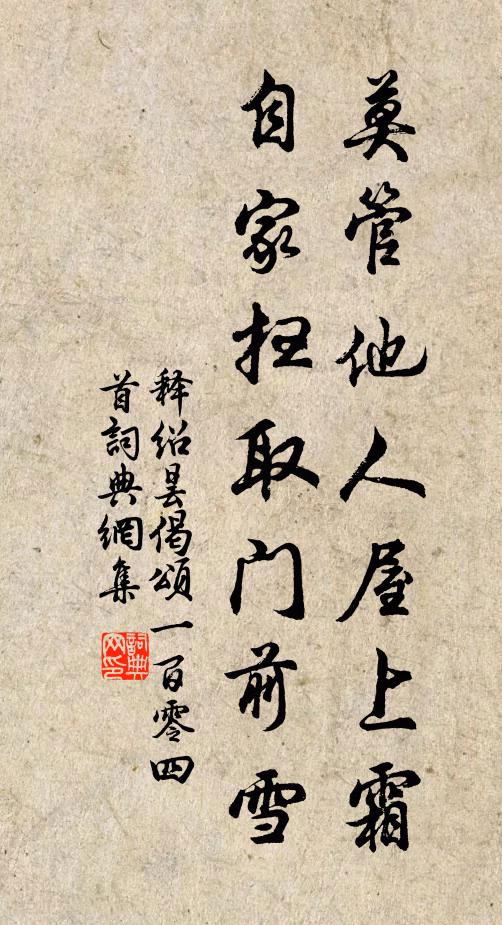 莫管他人屋上霜
自家扫取门前雪
释绍昙偈颂一百零四
首词典網集
詞典网印